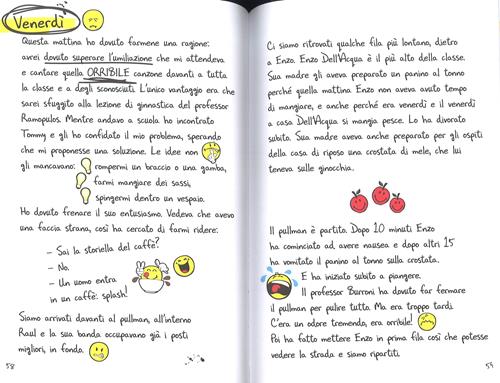 Venerdì
Questa mattina ho dovuto farmene una ragione:
avrei dovuto superare l'umiliazione che mi attendeva
e cantare quella ORRIBILE canzone davanti a tutta
la classe e a degli sconosciuti. L'unico vantaggio era che
sarei sfuggito alla lezione di ginnastica del professor
Ramopulos. Mentre andavo a scuola ho incontrato
Tommy e gli ho confidato il mio problema, sperando
che mi proponesse una soluzione. Le idee non
gli mancavano: rompermi un braccio o una gamba,
farmi mangiare dei sassi,
spingermi dentro un vespaio.
Ho dovuto frenare il suo entusiasmo. Vedeva che avevo
una faccia strana, così ha cercato di farmi ridere:
– Sai la storiella del caffè?
– No.
– Un uomo entra
in un caffè: splash!
Siamo arrivati davanti al pullman, all'interno
Raul e la sua banda occupavano già i posti
migliori, in fondo.
58
Ci siamo ritrovati qualche fila più lontano, dietro
a Enzo. Enzo Dell'Acqua è il più alto della classe.
Sua madre gli aveva preparato un panino al tonno
perché quella mattina Enzo non aveva avuto tempo
di mangiare, e anche perché era venerdì e il venerdì
a casa Dell'Acqua si mangia pesce. Lo ha divorato
subito. Sua madre aveva anche preparato per gli ospiti
della casa di riposo una crostata di mele, che lui
teneva sulle ginocchia.
Il pullman è partito. Dopo 10 minuti Enzo
ha cominciato ad avere nausea e dopo altri 15
ha vomitato il panino al tonno sulla crostata.
E ha iniziato subito a piangere.
Il professor Burroni ha dovuto far fermare
il pullman per pulire tutto. Ma era troppo tardi.
C'era un odore tremendo, era orribile!
Poi ha fatto mettere Enzo in prima fila così che potesse
vedere la strada e siamo ripartiti.